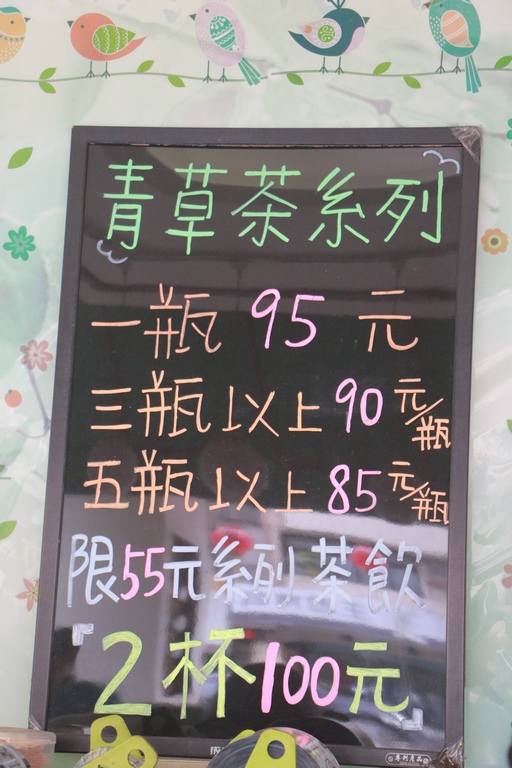 青草茶系列
一瓶 95 元
三瓶以上90元/瓶
五瓶以上85元/瓶
限55元系列茶飲
『2杯100元』
專利產品